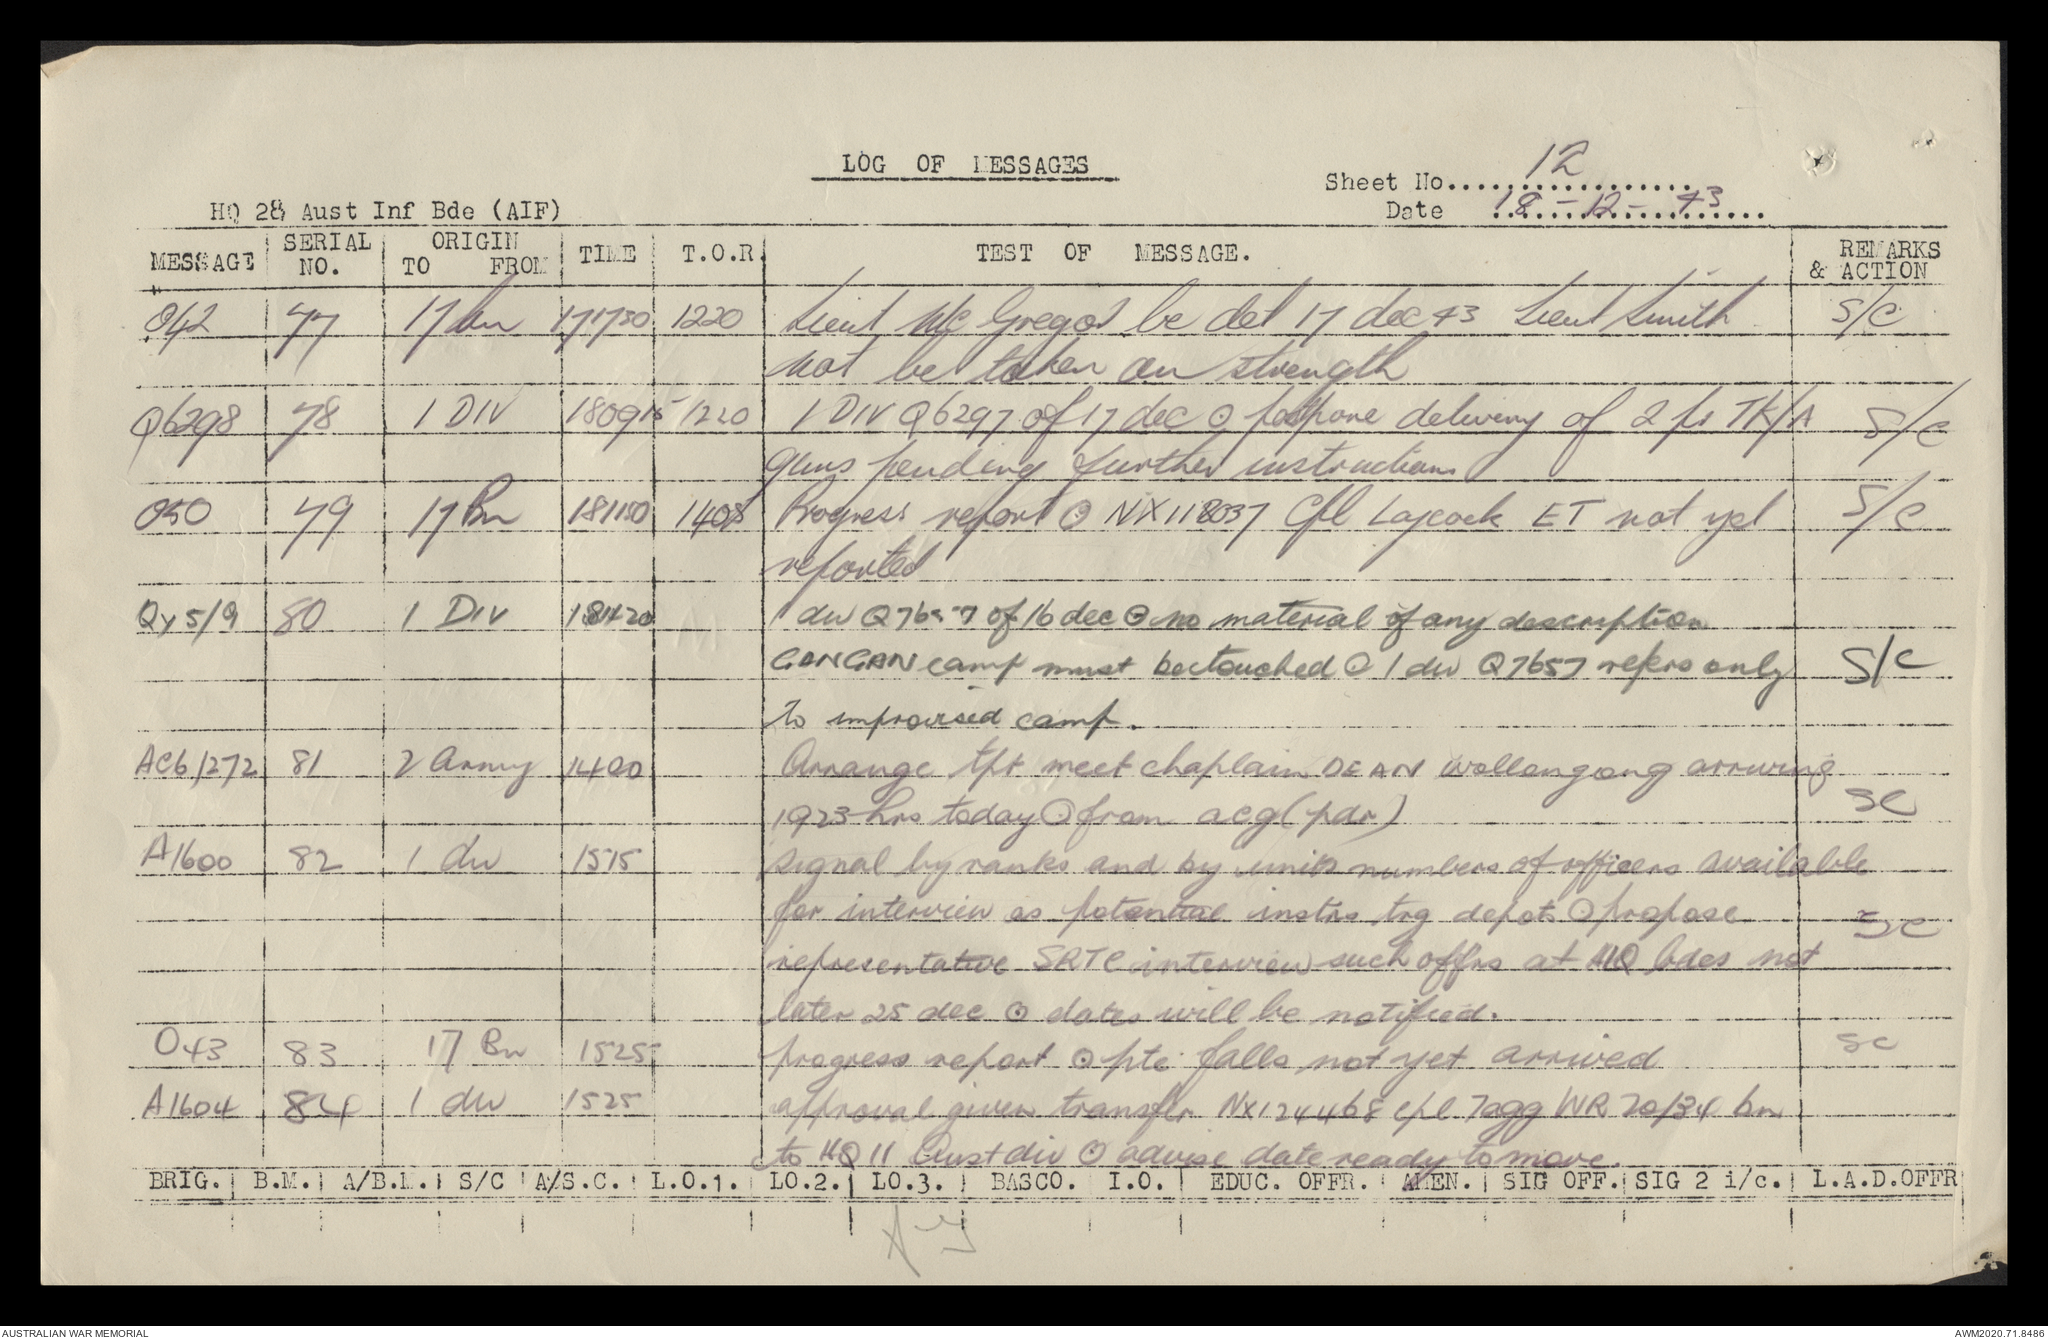 LOG OF MESSAGES
Sheet No.................. 12
HQ 28 Aust Inf Bde (AIF)
Date 18-12-43
MESSAGE SERIAL NO. ORIGIN TO FROM TIME T.O.R. TEST OF MESSAGE. REMARKS & ACTION
O42 77 17 bn 171730 1220 Lieut McGregor be det 17 dec 43 Lieut Smith S/C
not be taken on strength
Q6298 78 1 DIV 180915 1220 1 DIV Q6297 of 17 dec ⊙ postpone delivery of 2 pr TK/A S/C
guns pending further instructions
O50 79 17 Bn 181150 1408 Progress report ⊙ NX118037 Cpl Laycock ET not yet S/C
reported
Qy5/9 80 1 Div 181420 1 div Q7657 of 16 dec ⊙ no material of any description
GANGAN camp must be touched ⊙ 1 div Q7657 refers only S/C
to improvised camp.
AC61272 81 2 Army 1400 Arrange tpt meet chaplain DEAN Wollongong arriving
1923 hrs today ⊙ from acg (pdr) SC
A1600 82 1 div 1515 signal by ranks and by units numbers of officers available
for interview as potential instrs trg depots ⊙ propose SC
representative SRTC interview such offrs at HQ bdes not
later 25 dec ⊙ dates will be notified.
O43 83 17 Bn 1525 progress report ⊙ pte falls not yet arrived SC
A1604 84 1 div 1525 approval given transfer NX124468 cpl Tagg WR 20/34 bn
to HQ 11 Aust div ⊙ advise date ready to move.
BRIG. B.M. A/B.M. S/C A/S.C. L.O.1. LO.2. LO.3. BASCO. I.O. EDUC. OFFR. AMEN. SIG OFF. SIG 2 i/c. L.A.D.OFFR
AUSTRALIAN WAR MEMORIAL
AWM2020.71.8486